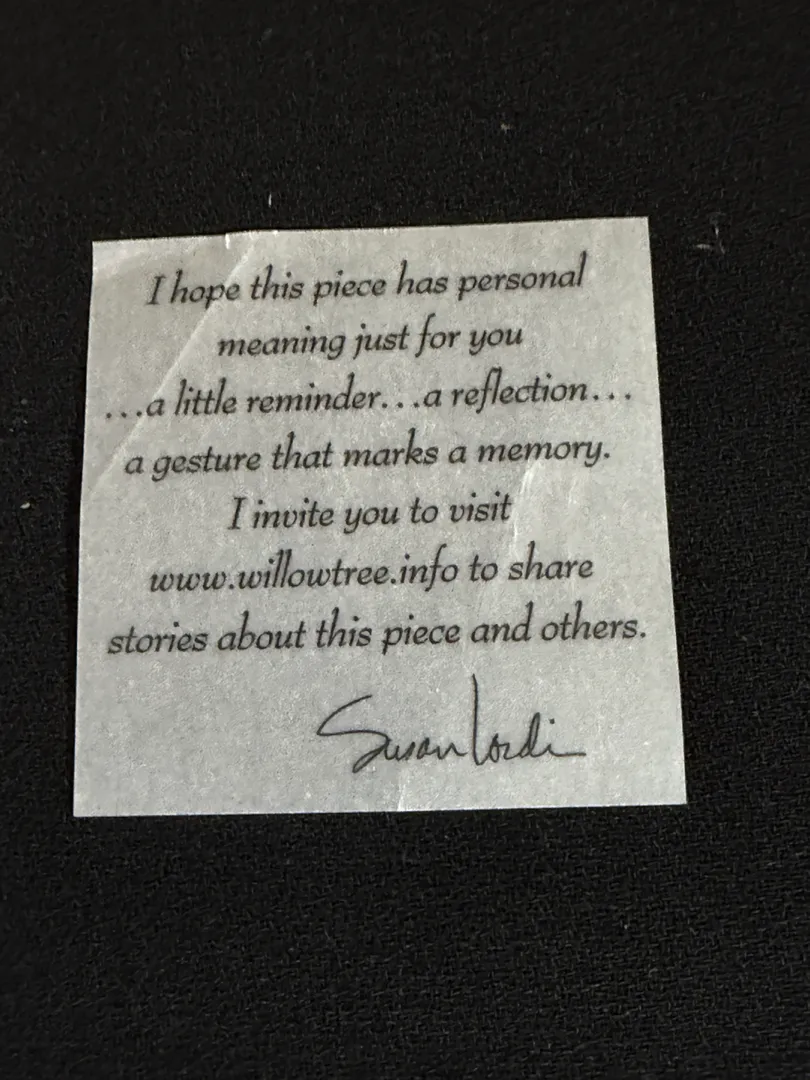 I hope this piece has personal
meaning just for you
...a little reminder...a reflection...
a gesture that marks a memory.
I invite you to visit
www.willowtree.info to share
stories about this piece and others.
Susan Lordi